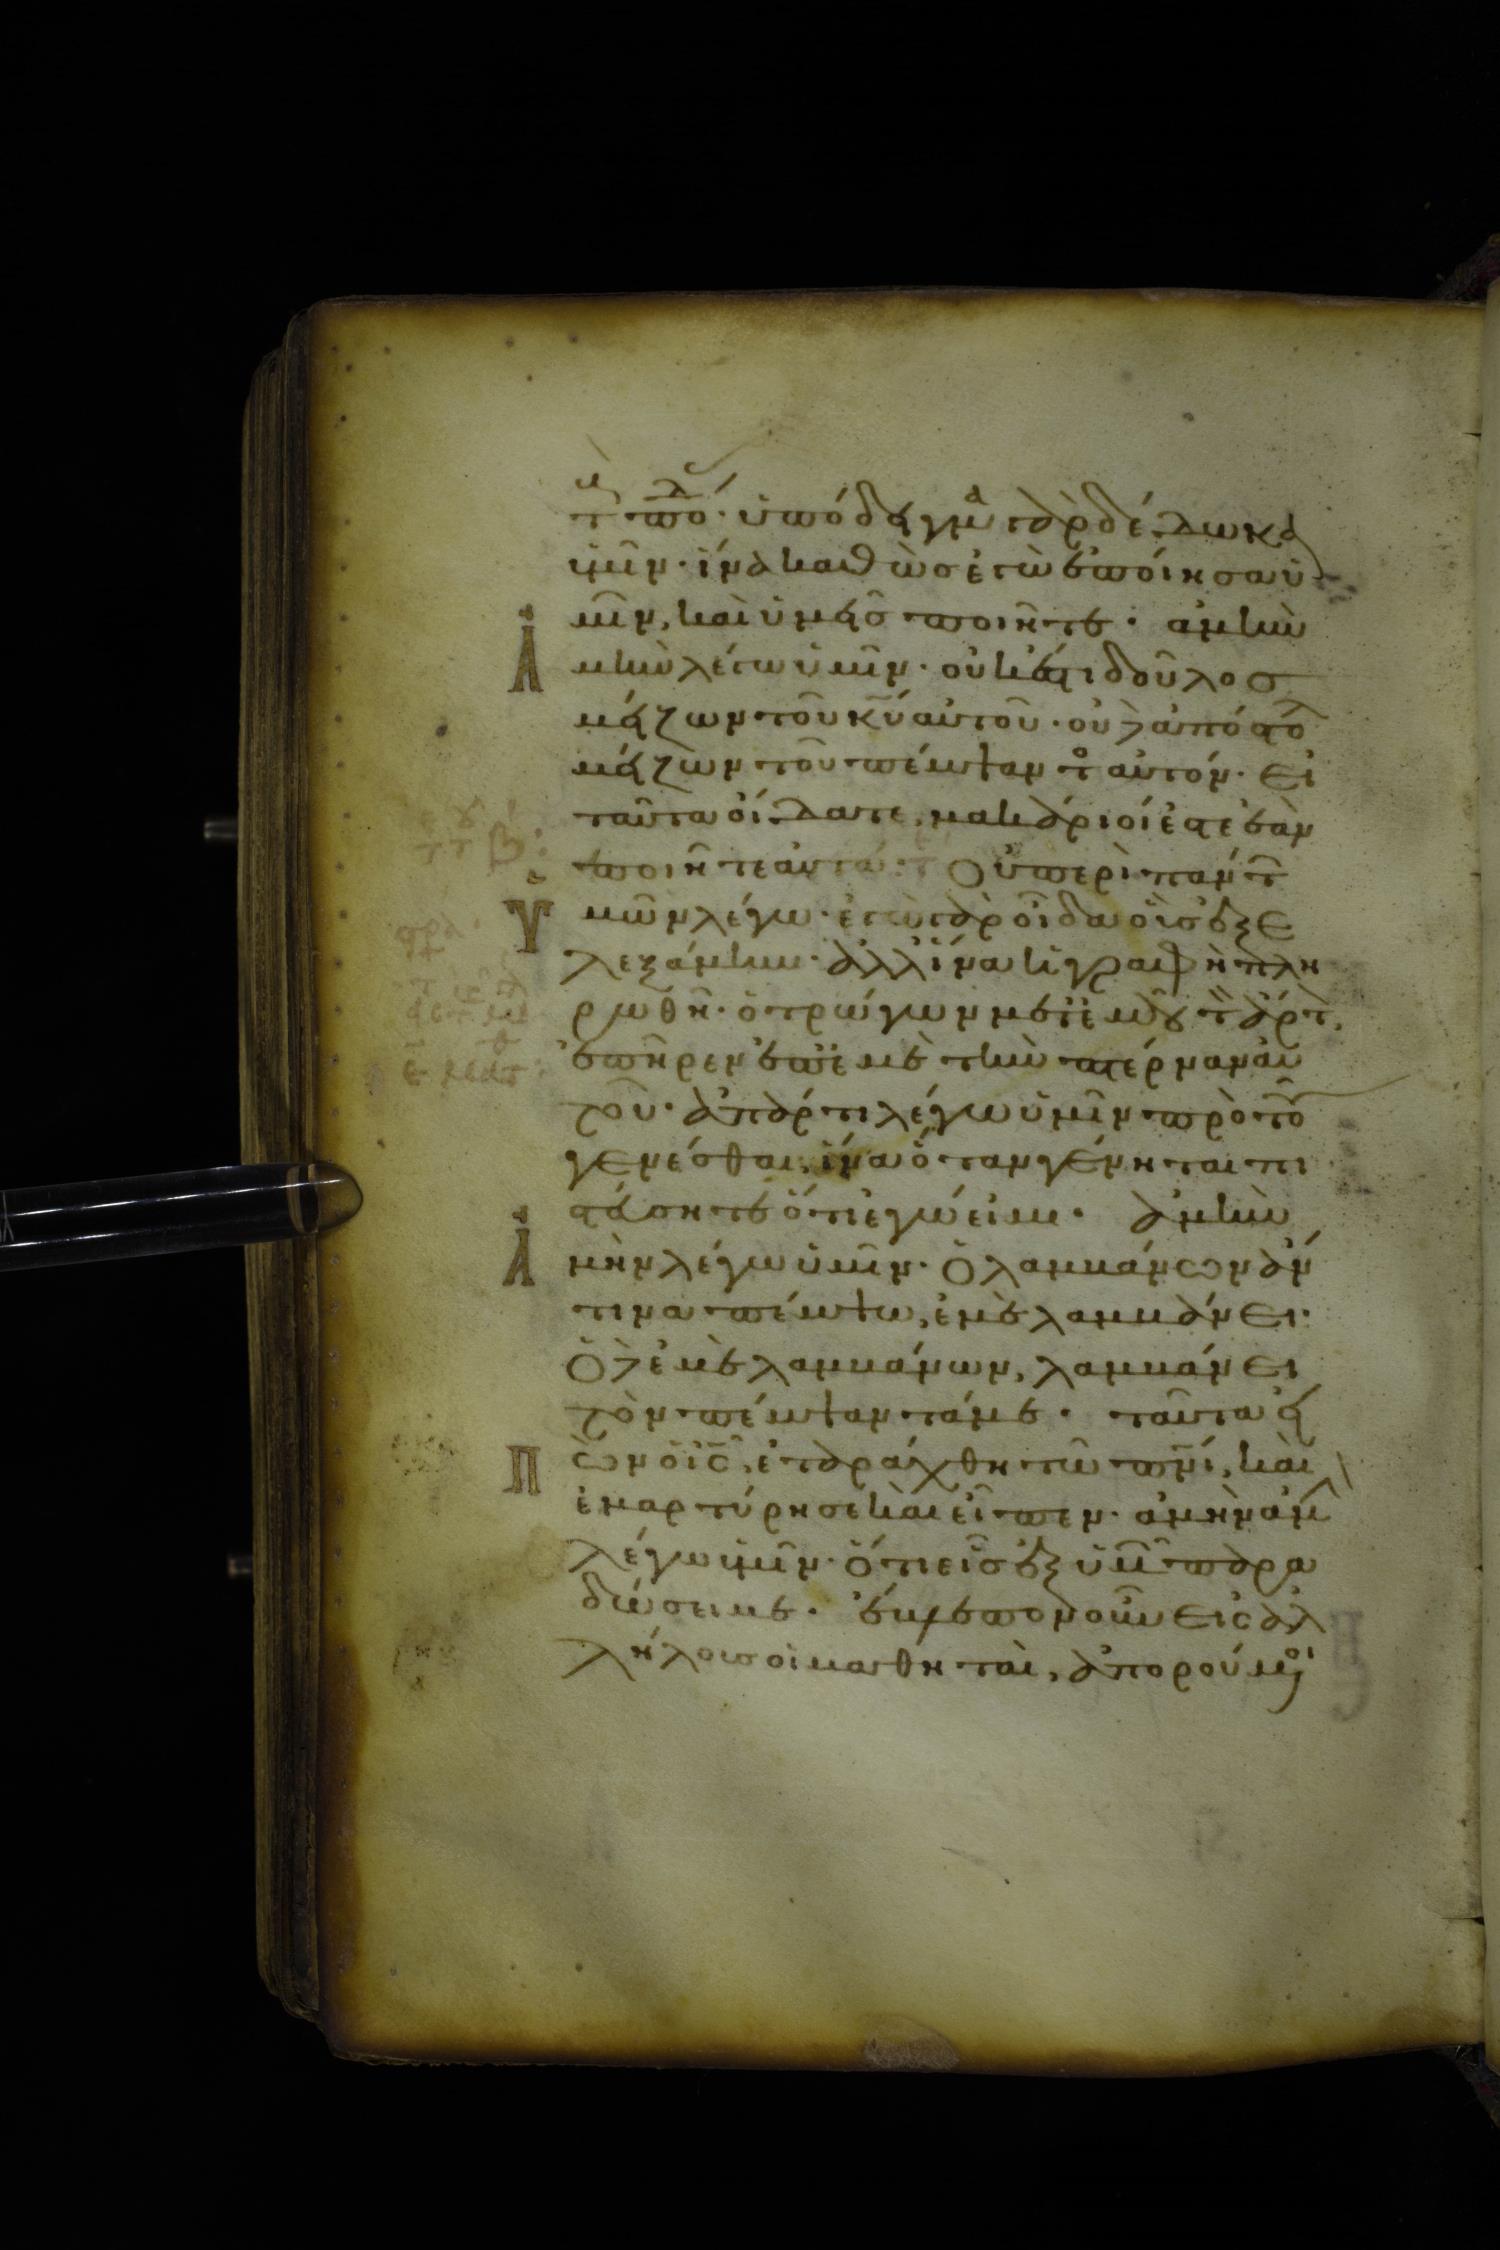 τ πο· ὑπόδειγμα γὰρ δέδωκα
ὑμῖν· ἵνα καθὼς ἐγὼ ἐποίησα ὑ
μῖν, καὶ ὑμεῖς ποιῆτε· ἀμὴν
Ἀ μὴν λέγω ὑμῖν· οὐκ ἔστι δοῦλος
μείζων τοῦ κυ αὐτοῦ· οὐδὲ ἀπόστολ
μείζων τοῦ πέμψαντο αὐτόν· Εἰ
ταῦτα οἴδατε, μακάριοί ἐστε ἐὰν
ποιῆτε αὐτά· Οὐ περὶ πάντ
Ὑ μῶν λέγω· ἐγὼ γὰρ οἶδα οὓς ἐξε
λεξάμην· ἀλλ' ἵνα ἡ γραφὴ πλη
ρωθῇ· ὁ τρώγων μετ' ἐμοῦ τ ἄρτ,
ἐπῆρεν ἐπ' ἐμὲ τὴν πτέρναν αὐ
τοῦ· ἀπάρτι λέγω ὑμῖν πρὸ τοῦ
γενέσθαι, ἵνα ὅταν γένηται πι
στεύσητε ὅτι ἐγώ εἰμι· ἀμὴν
Ἀ μὴν λέγω ὑμῖν· Ὁ λαμβάνων ἄν
τινα πέμψω, ἐμὲ λαμβάνει·
Ὁ δὲ ἐμὲ λαμβάνων, λαμβάνει
τὸν πέμψαντά με· ταῦτα εἰ
Π ὼν ὁ ις, ἐταράχθη τῷ πνι, καὶ
ἐμαρτύρησε καὶ εἶπεν· ἀμὴν ἀμ
λέγω ὑμῖν· ὅτι εἷς ἐξ ὑμ παρα
δώσει με· ἔβλεπον οὖν εἰς ἀλ
λήλους οἱ μαθηταὶ, ἀπορούμενοι